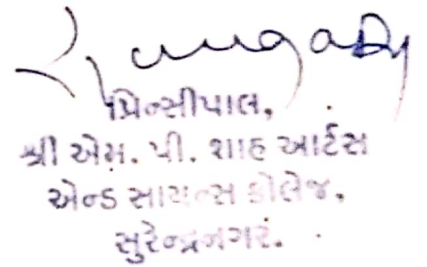 પ્રિન્સીપાલ,
શ્રી એમ. પી. શાહ આર્ટસ
એન્ડ સાયન્સ કોલેજ.
સુરેન્દ્રનગર.